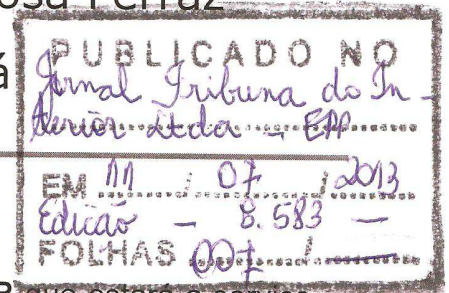 osa Ferraz
á
PUBLICADO NO
Jornal Tribuna do In-
terior Ltda - EPP
EM 11 / 07 / 2013
Edição - 8.583 -
FOLHAS 007 /